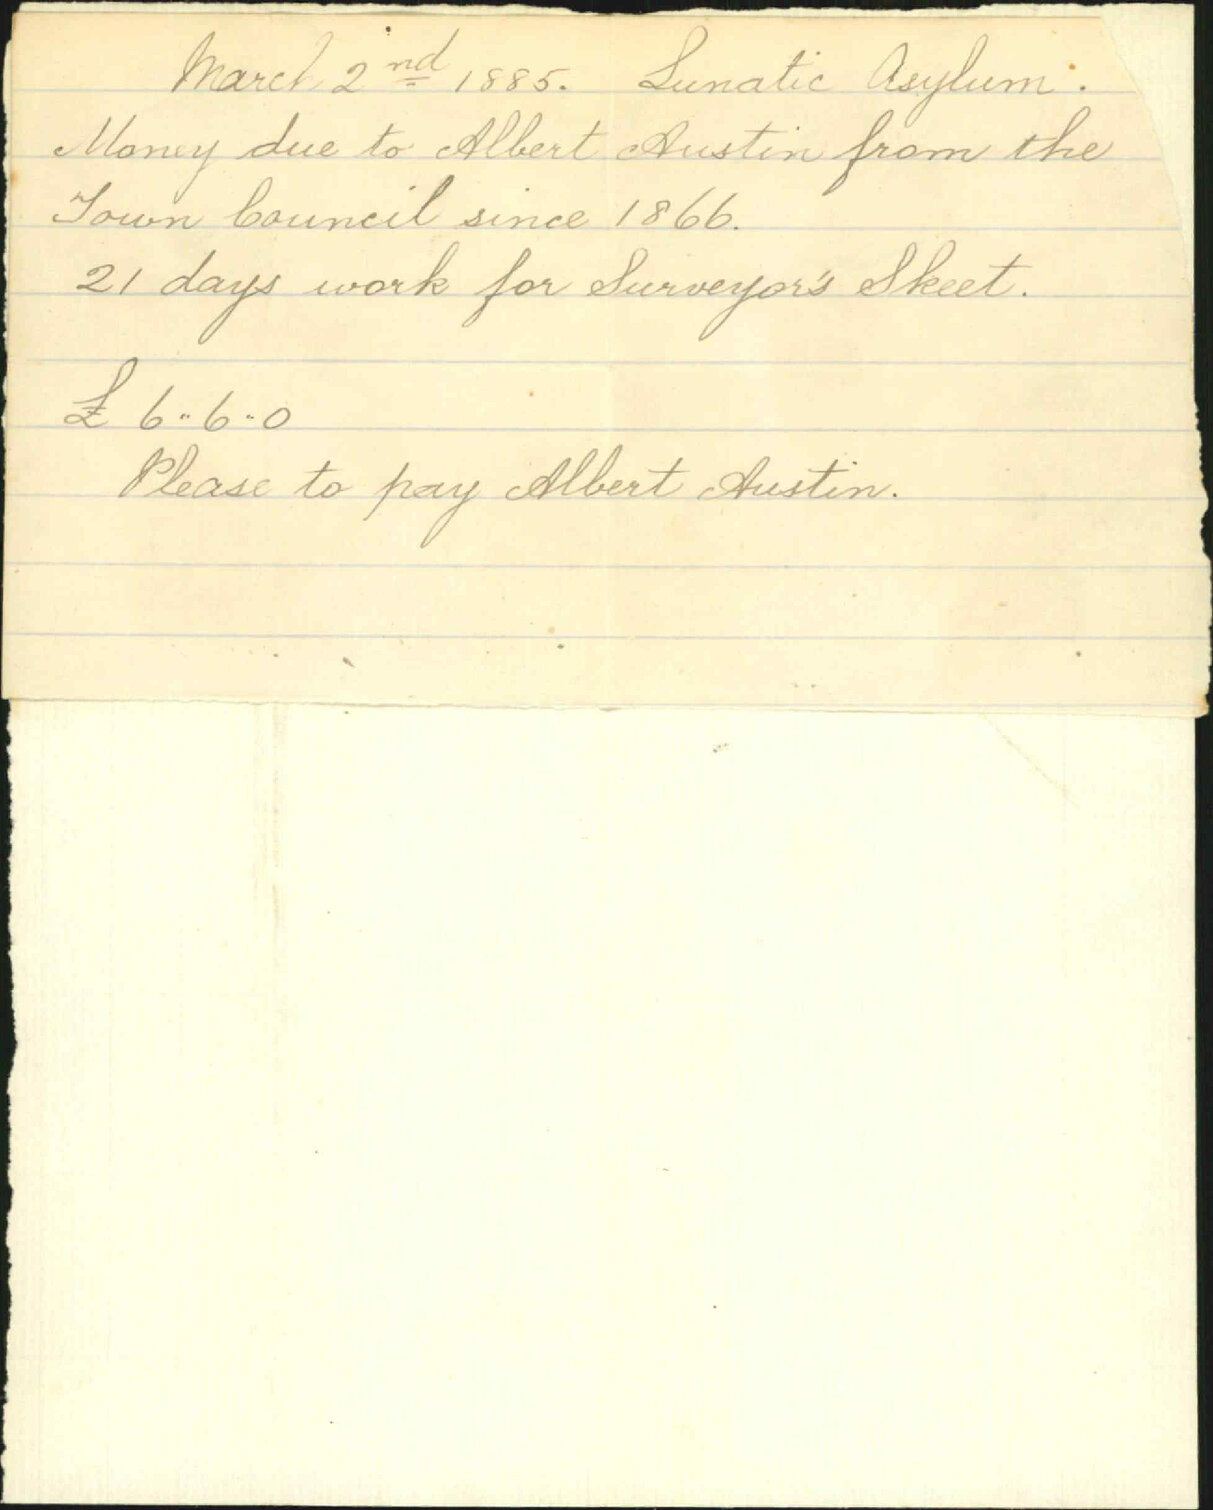 March 2nd 1885. Lunatic Asylum.
Money due to Albert Austin from the
Town Council since 1866.
21 days work for Surveyor's Skeet.
£ 6"6"0
Please to pay Albert Austin.